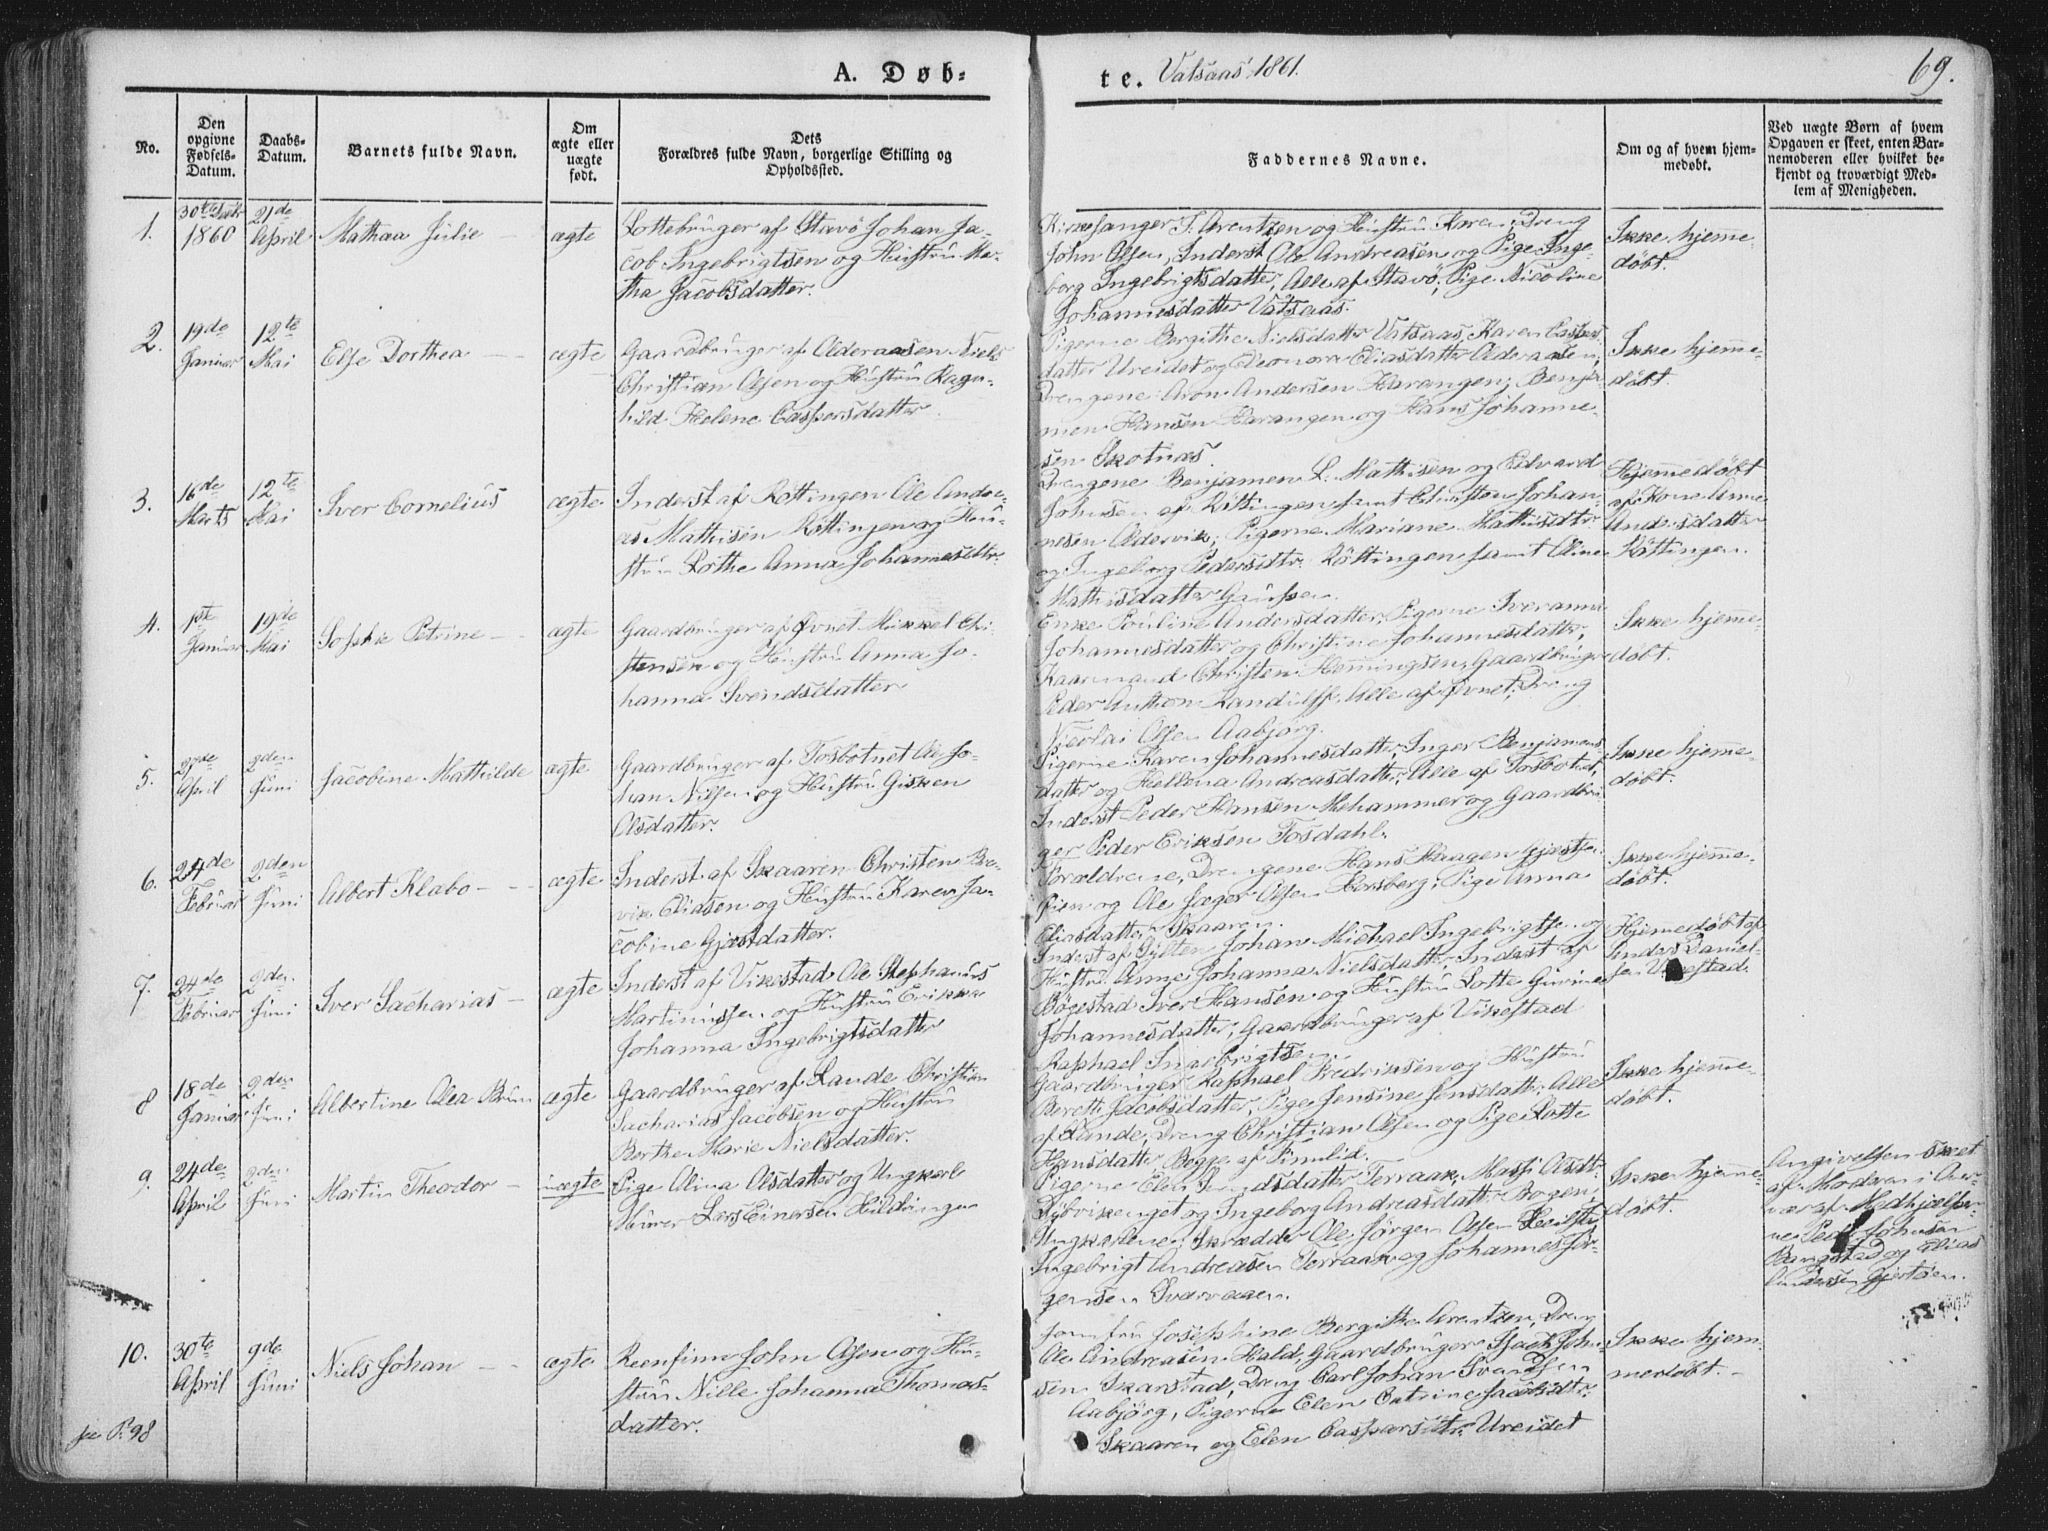 A. Døb-
te. Vatsaas 1861.
69.
No.
Den opgivne Fødsels-Datum.
Daabs-Datum.
Barnets fulde Navn.
Om ægte eller uægte født.
Dets Forældres fulde Navn, borgerlige Stilling og Opholdssted.
Faddernes Navne.
Om og af hvem hjemmedøbt.
Ved uægte Børn af hvem Opgaven er skeet, enten Barnemoderen eller hvilket bekjendt og troværdigt Medlem af Menigheden.
1.
1860
21de April
Mathea Julie
ægte
Lottebruger af Stavø Johan Ja-
cob Ingebrigtsen og Hustru Mar-
tha Jacobsdatter.
Kirkesanger T. Arentzen og Hustru Karen; Dreng
John Olsen, Inderst Ole Andreasen og Pige Inge-
borg Ingebrigtsdatter, Alle af Stavø; Pige Nicoline
Johannesdatter Vatsaas.
Ikke hjemme-
døbt.
2.
19de Januar
12te Mai
Else Dorthea
ægte
Gaardbruger af Olderaasen Niels
Christian Olsen og Hustru Ragn-
hild Helene Caspersdatter
Pigerne Bergithe Nielsdatter Vatsaas, Karen Caspers-
datter Ureidet og Eleonora Eliasdatter Olderaasen;
Drengene Aron Andersen Harangen; Benja-
men Hansen Harangen og Hans Johanne-
sen Skotnæs.
Ikke hjemme-
døbt.
3.
16de Marts
12te Mai
Iver Cornelius
ægte
Inderst af Røttingen Ole Andre-
as Mathisen Røttingen og Hu-
stru Lothe Anna Johannesdtr.
Drengene Benjamen L. Mathisen og Edvard
Johnsen af Røttingen samt Christen Johan-
nesen Oldervik; Pigerne Mariane Mathisdtr
og Ingeborg Pedersdtr. Røttingen samt Oline
Mathisdatter
Hjemmedøbt
af Kone Anne
Andersdatter
Røttingen.
4.
1ste Januar
19de Mai
Sophie Petrine
ægte
Gaardbruger af Øvnet Mikkel Chri-
stensen og Hustru Anna Jo-
hanna Svendsdatter
Enke Pouline Andersdatter, Pigerne Iveranna
Johannesdatter og Christine Johannesdatter,
Kaarmand Christen Hemmingsen, Gaardbruger
Peder Anthon Landulff, Alle af Øvnet; Dreng
Nicolai Olsen Aabjørg.
Ikke hjemme-
døbt.
5.
April
2den Juni
Jacobine Mathilde
ægte
Gaardbruger af Tosbotnet Ole Jo-
han Nilsen og Hustru Gisken
Olsdatter.
Pigerne Karen Johannesdatter, Inger Benjamens-
datter og Hellena Andreasdatter, Alle af Tosbotnet,
Inderst Peder Hansen Mehammer og Gaardbru-
ger Peder Eriksen Tosdahl.
Ikke hjemme-
døbt.
6.
24de Februar
2den Juni
Albert Klabo
ægte
Inderst af Skaaren Christen Bre-
vik Eliasen og Hustru Karen Ja-
cobine Gjæstdatter.
Forældrene, Drengene Hans Skaagen Gjæst-
sen og Ole Jæger Olsen Horsberg; Pige Anna
Eliasdatter Skaaren.
Ikke hjemme-
døbt.
7.
24de Februar
2den Juni
Iver Sacharias
ægte
Inderst af Vikestad Ole Stephanus
Martinussen og Hustru Erikka
Johanna Ingebrigtsdatter
Inderst af Sylten Johan Michael Ingebrigtsen og
Hustru Anne Johanna Nielsdatter, Inderst af
Bøgestad Iver Hansen og Hustru Lotte Gurine
Johannesdatter, Gaardbruger af Vikestad
Raphael Ingebrigtsen
Hjemmedøbt af
Inderst Daniel-
sen Vikestad.
8
18de Januar
2den Juni
Albertine Olea Bruun
ægte
Gaardbruger af Lande Christian
Sacharias Jacobsen og Hustru
Berthe Marie Nielsdatter.
Gaardbruger Raphael Fredriksen og Hustru
Bereth Jacobsdatter, Pige Jensine Jensdatter, Alle
af Lande, Dreng Christian Olsen og Pige Lotte
Hansdatter, Begge af Simulik.
Ikke hjemme-
døbt.
9.
24de April
2den Juni
Martin Theodor
uægte
Pige Olina Olsdatter og Ungkarl
Murer Lars Einersen Hildringen
Pigerne Elen Terraak, Massi Olsdtr.
Dybvikenget og Ingeborg Andreasdatter Bogen;
Ungkarlene: Skrædder Ole Jørgen Olsen
Ingebrigt Andreasen Terraak og Johannes Jør-
gensen Svarvaagen.
Ikke hjemme-
døbt.
Angivelsen skeet
af Moderen i Over-
vær af Medhjelper-
ne Peder Johnsen
Bangstad og Elias
Andersen
10.
30te April
9de Juni
Niels Johan
ægte
Reenfinn John Olsen og Hu-
stru Nille Johanna Thomas-
datter.
Jomfru Josephine Bergithe Arentzen, Dreng
Ole Andreasen Hald, Gaardbruger Isach John-
sen Skarstad, Dreng Carl Johan Svendsen
Aabjørg, Pigerne Elen Catrine Jacobsdtr.
Skaaren og Elen Caspersdtr. Ureidet
Ikke hjem-
medøbt.
see P. 98